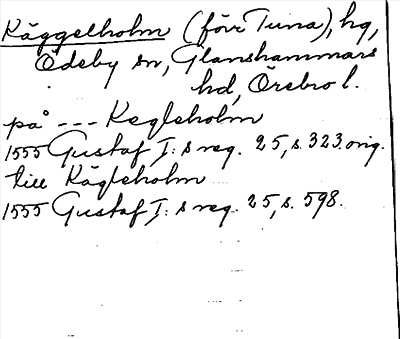 Käggelholm (förr Tuna), hg,
Ödeby sn, Glanshammars
hd, Örebro l.
på --- Kegleholm
1555 Gustaf I:s reg. 25, s. 323. orig.
till Kägleholm
1555 Gustaf I:s reg. 25, s. 598.